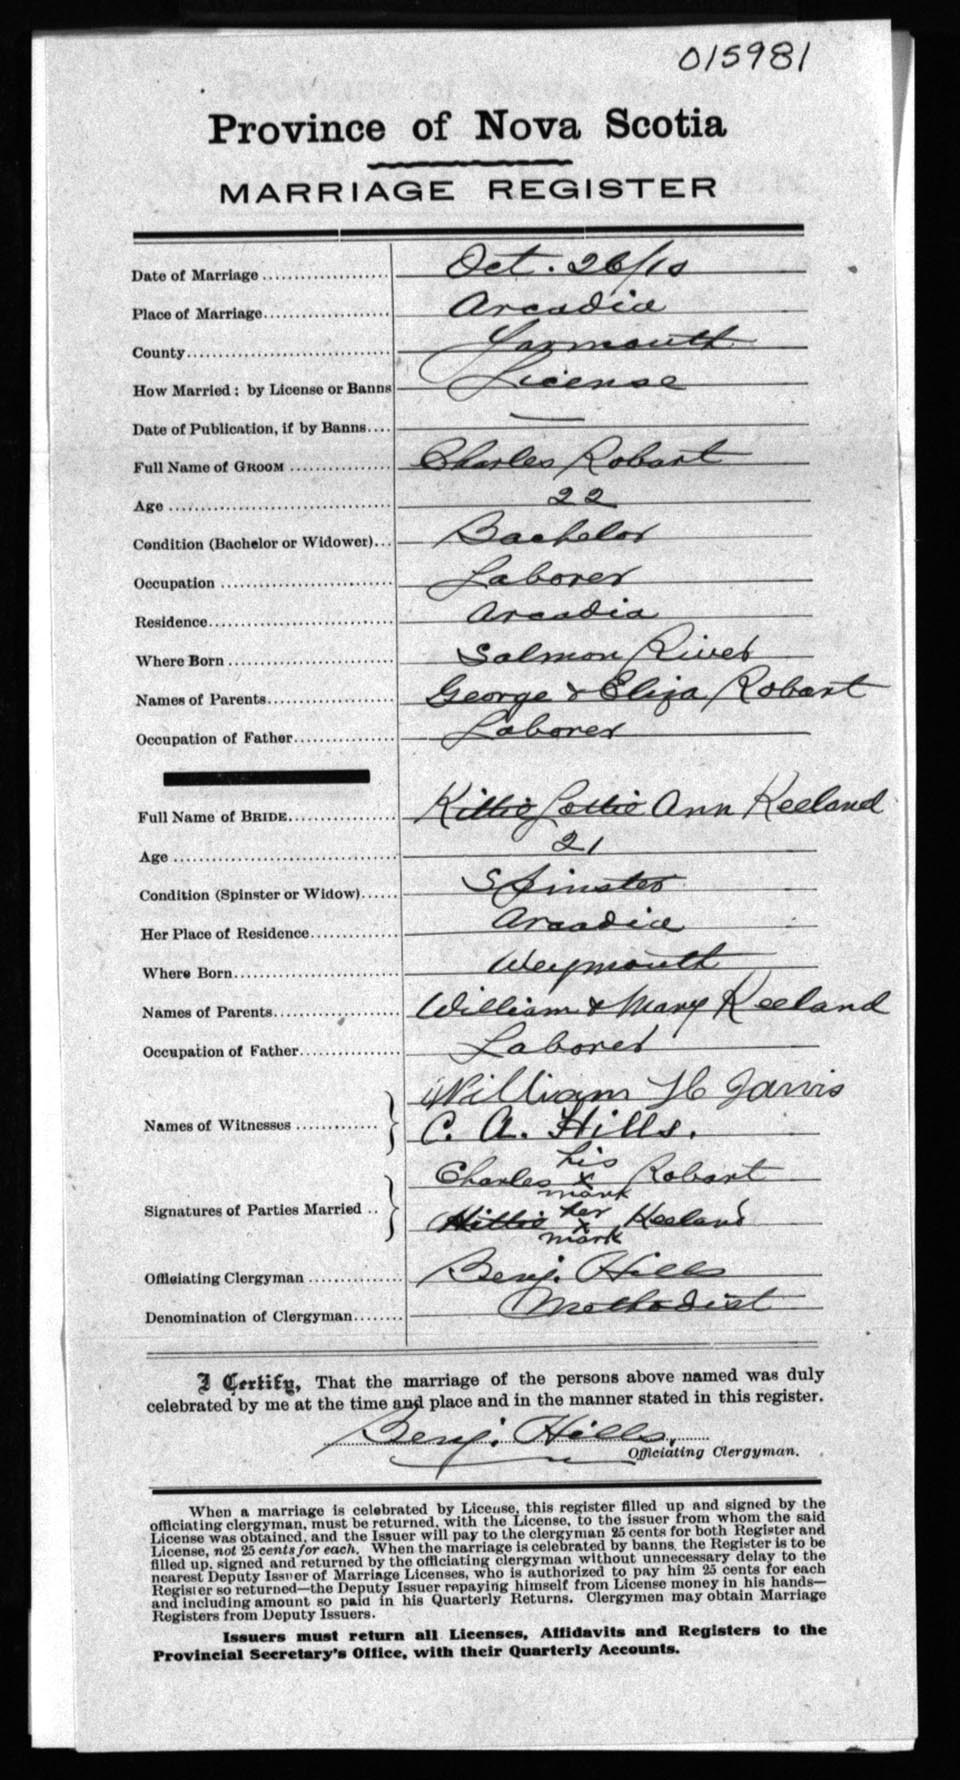 015981
Province of Nova Scotia
MARRIAGE REGISTER
Date of Marriage Oct. 26/10
Place of Marriage Arcadia
County Yarmouth
How Married; by License or Banns License
Date of Publication, if by Banns —
Full Name of GROOM Charles Robart
Age 22
Condition (Bachelor or Widower) Bachelor
Occupation Laborer
Residence Arcadia
Where Born Salmon River
Names of Parents George & Eliza Robart
Occupation of Father Laborer
Full Name of BRIDE Kittie Lottie Ann Keeland
Age 21
Condition (Spinster or Widow) Spinster
Her Place of Residence Arcadia
Where Born Weymouth
Names of Parents William & Mary Keeland
Occupation of Father Laborer
Names of Witnesses William H Jarvis
C. A. Hills.
Signatures of Parties Married Charles his x mark Robart
her x mark Keeland
Officiating Clergyman Benj. Hills
Denomination of Clergyman Methodist
I Certify, That the marriage of the persons above named was duly
celebrated by me at the time and place and in the manner stated in this register.
Benj. Hills,
Officiating Clergyman.
When a marriage is celebrated by License, this register filled up and signed by the
officiating clergyman, must be returned, with the License, to the issuer from whom the said
License was obtained, and the Issuer will pay to the clergyman 25 cents for both Register and
License, not 25 cents for each. When the marriage is celebrated by banns, the Register is to be
filled up, signed and returned by the officiating clergyman without unnecessary delay to the
nearest Deputy Issuer of Marriage Licenses, who is authorized to pay him 25 cents for each
Register so returned—the Deputy Issuer repaying himself from License money in his hands—
and including amount so paid in his Quarterly Returns. Clergymen may obtain Marriage
Registers from Deputy Issuers.
Issuers must return all Licenses, Affidavits and Registers to the
Provincial Secretary's Office, with their Quarterly Accounts.